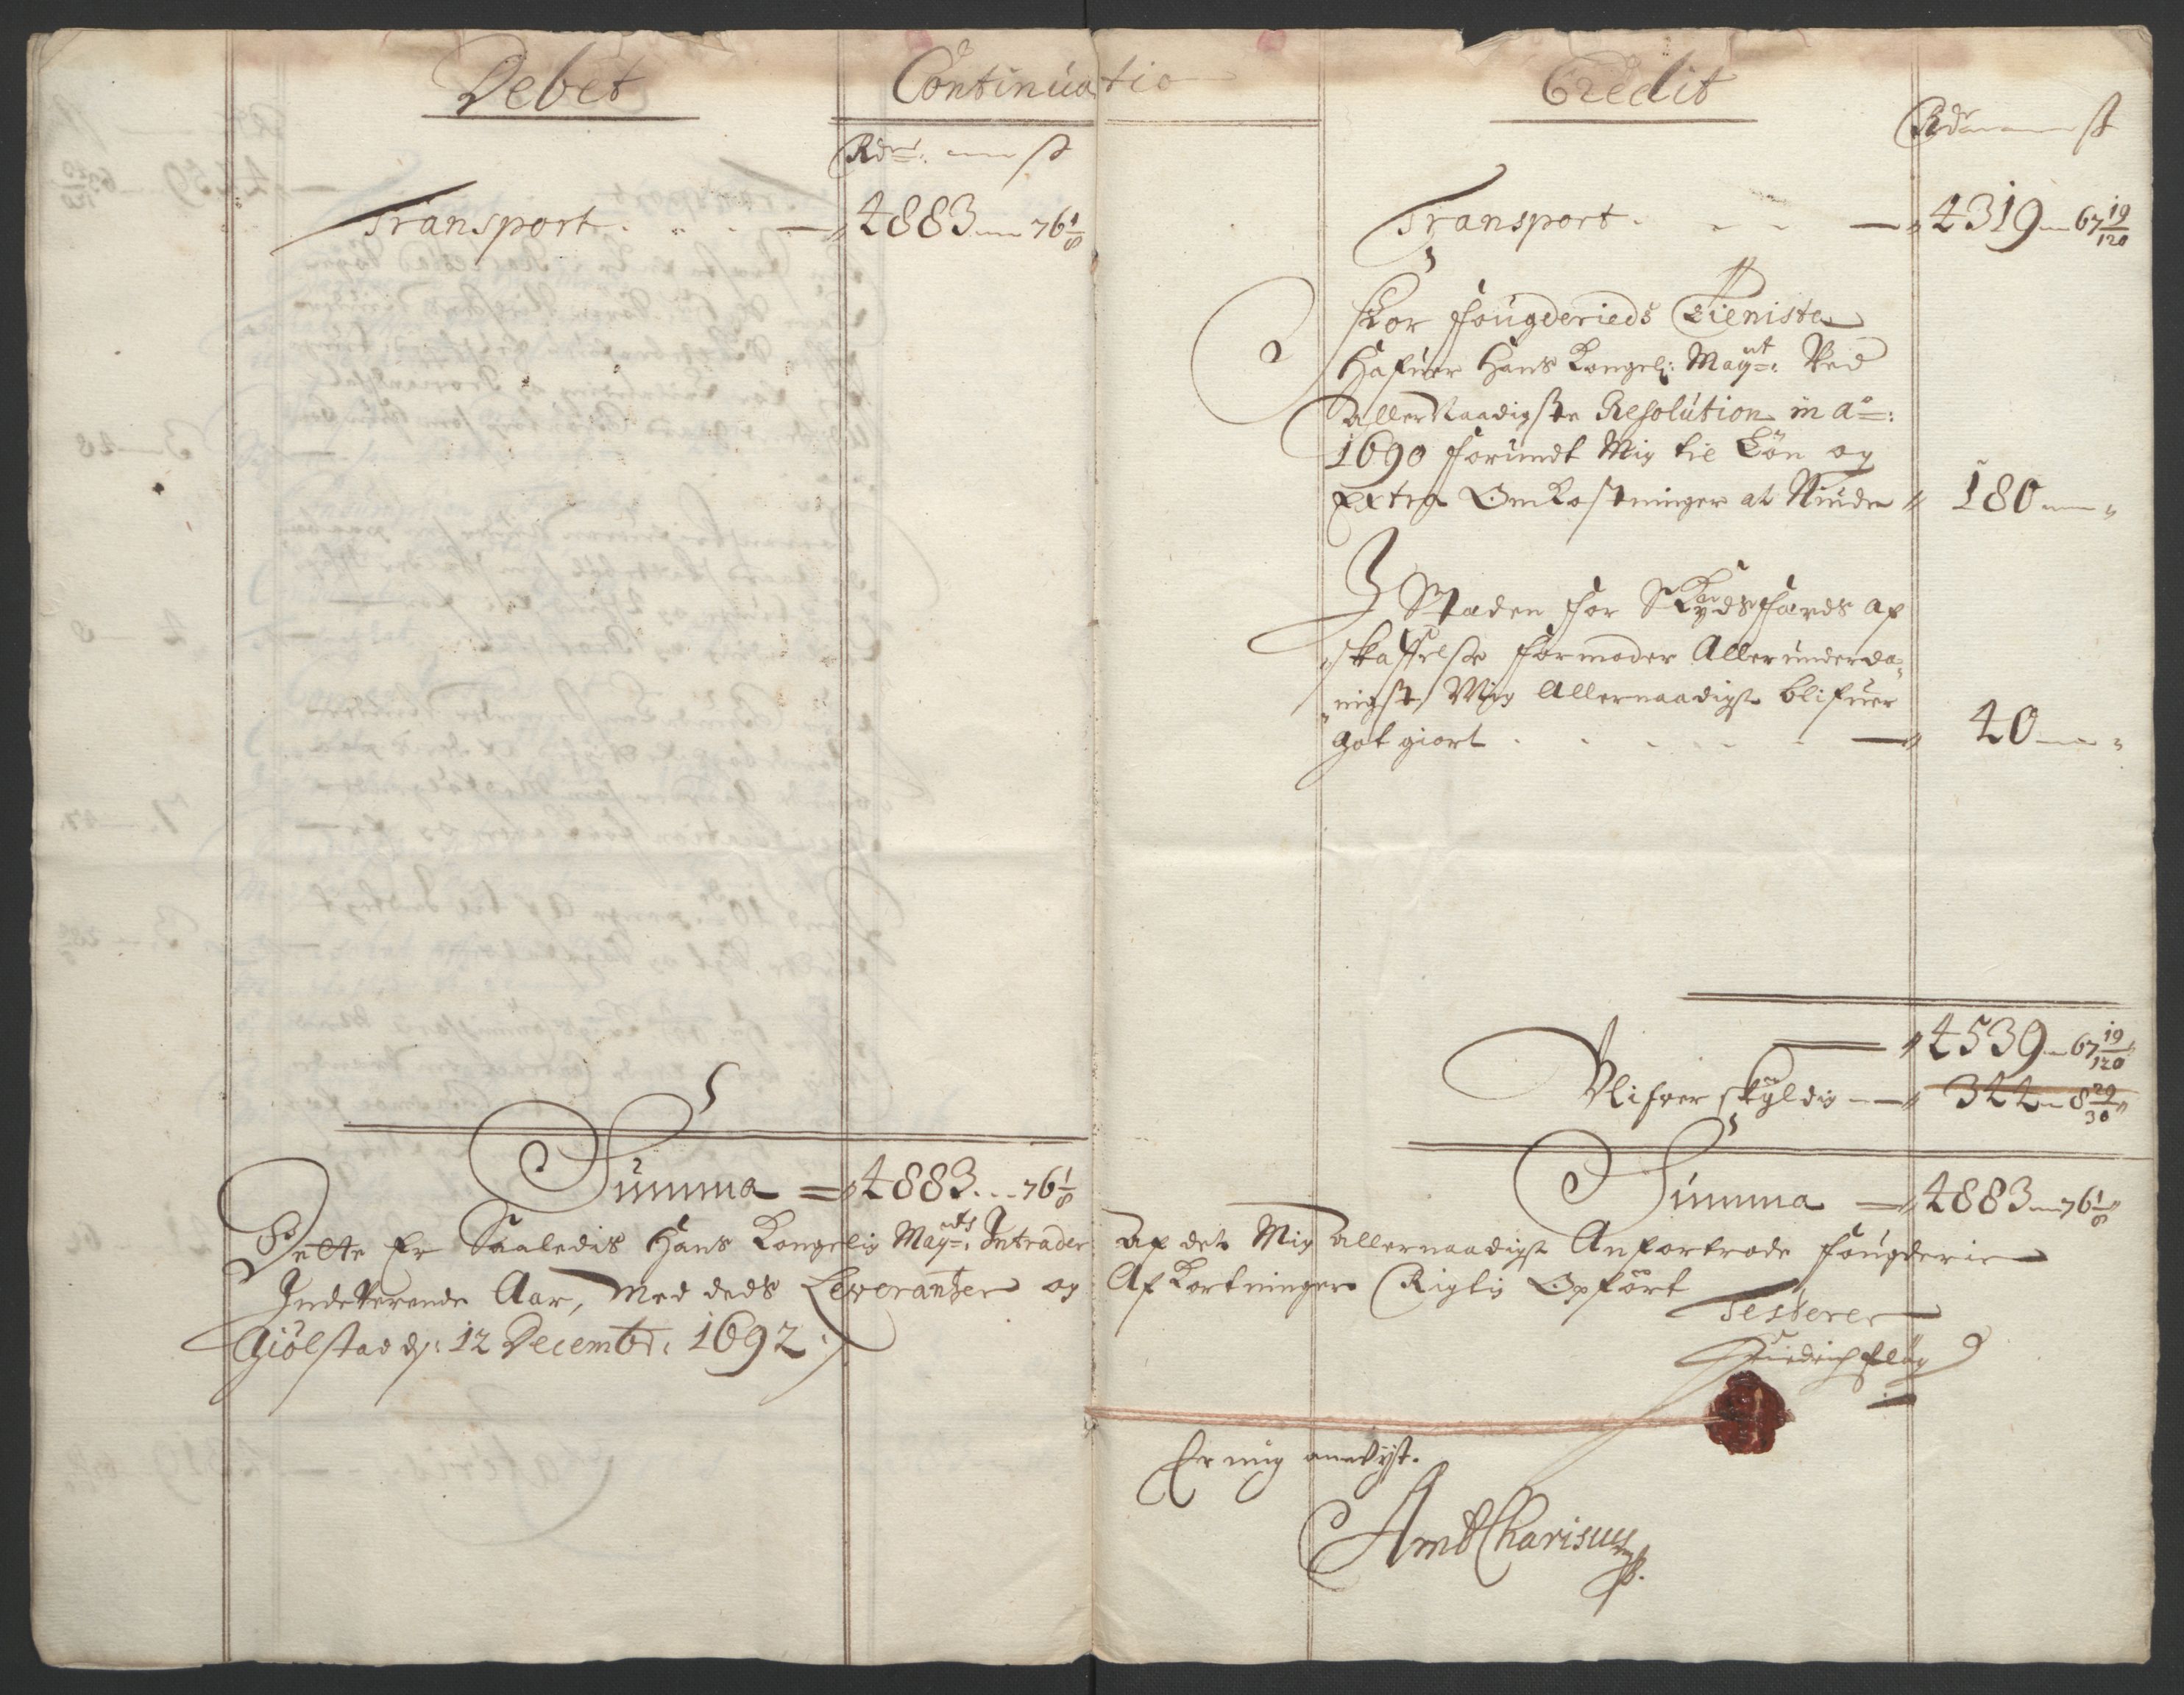 Debet
Continuatio
Credit
Rdr: ß
Transport . . . . — 4883 — 76 1/8
Rdr ß
Transport . . . — 4319 — 67 19/120
For fougderieds Tieniste
Hafuer Hans Kongel: Mayt: Ved
allerNaadigste Resolution in a°:
1690 forundt Mig til Lön og
Extra OmKostninger at Niude 180 —
J Staden for SKydsfærds af
skaffelse formoder Allerunderda-
nigst Mig Allernaadigst blifuer
got giort . . . . . — 40 —
4539 — 67 19/120
Blifver skyldig — 344 — 8 29/30
Summa = 4883 . . . 76 1/8
Summa = 4883 — 76 1/8
Dette Er Saaledis Hans Kongelig Mayts: Intrader af det Mig allernaadigst Anfortrode fougderie
Indeverende Aar, Med deds Leverantzer og AfKortninger Rigtig Opfört
Testerer
Giölstad d: 12 Decembr: 1692 :/
Friedrich Flüg
Er mig anvijst.
Amb Charisius
mp.